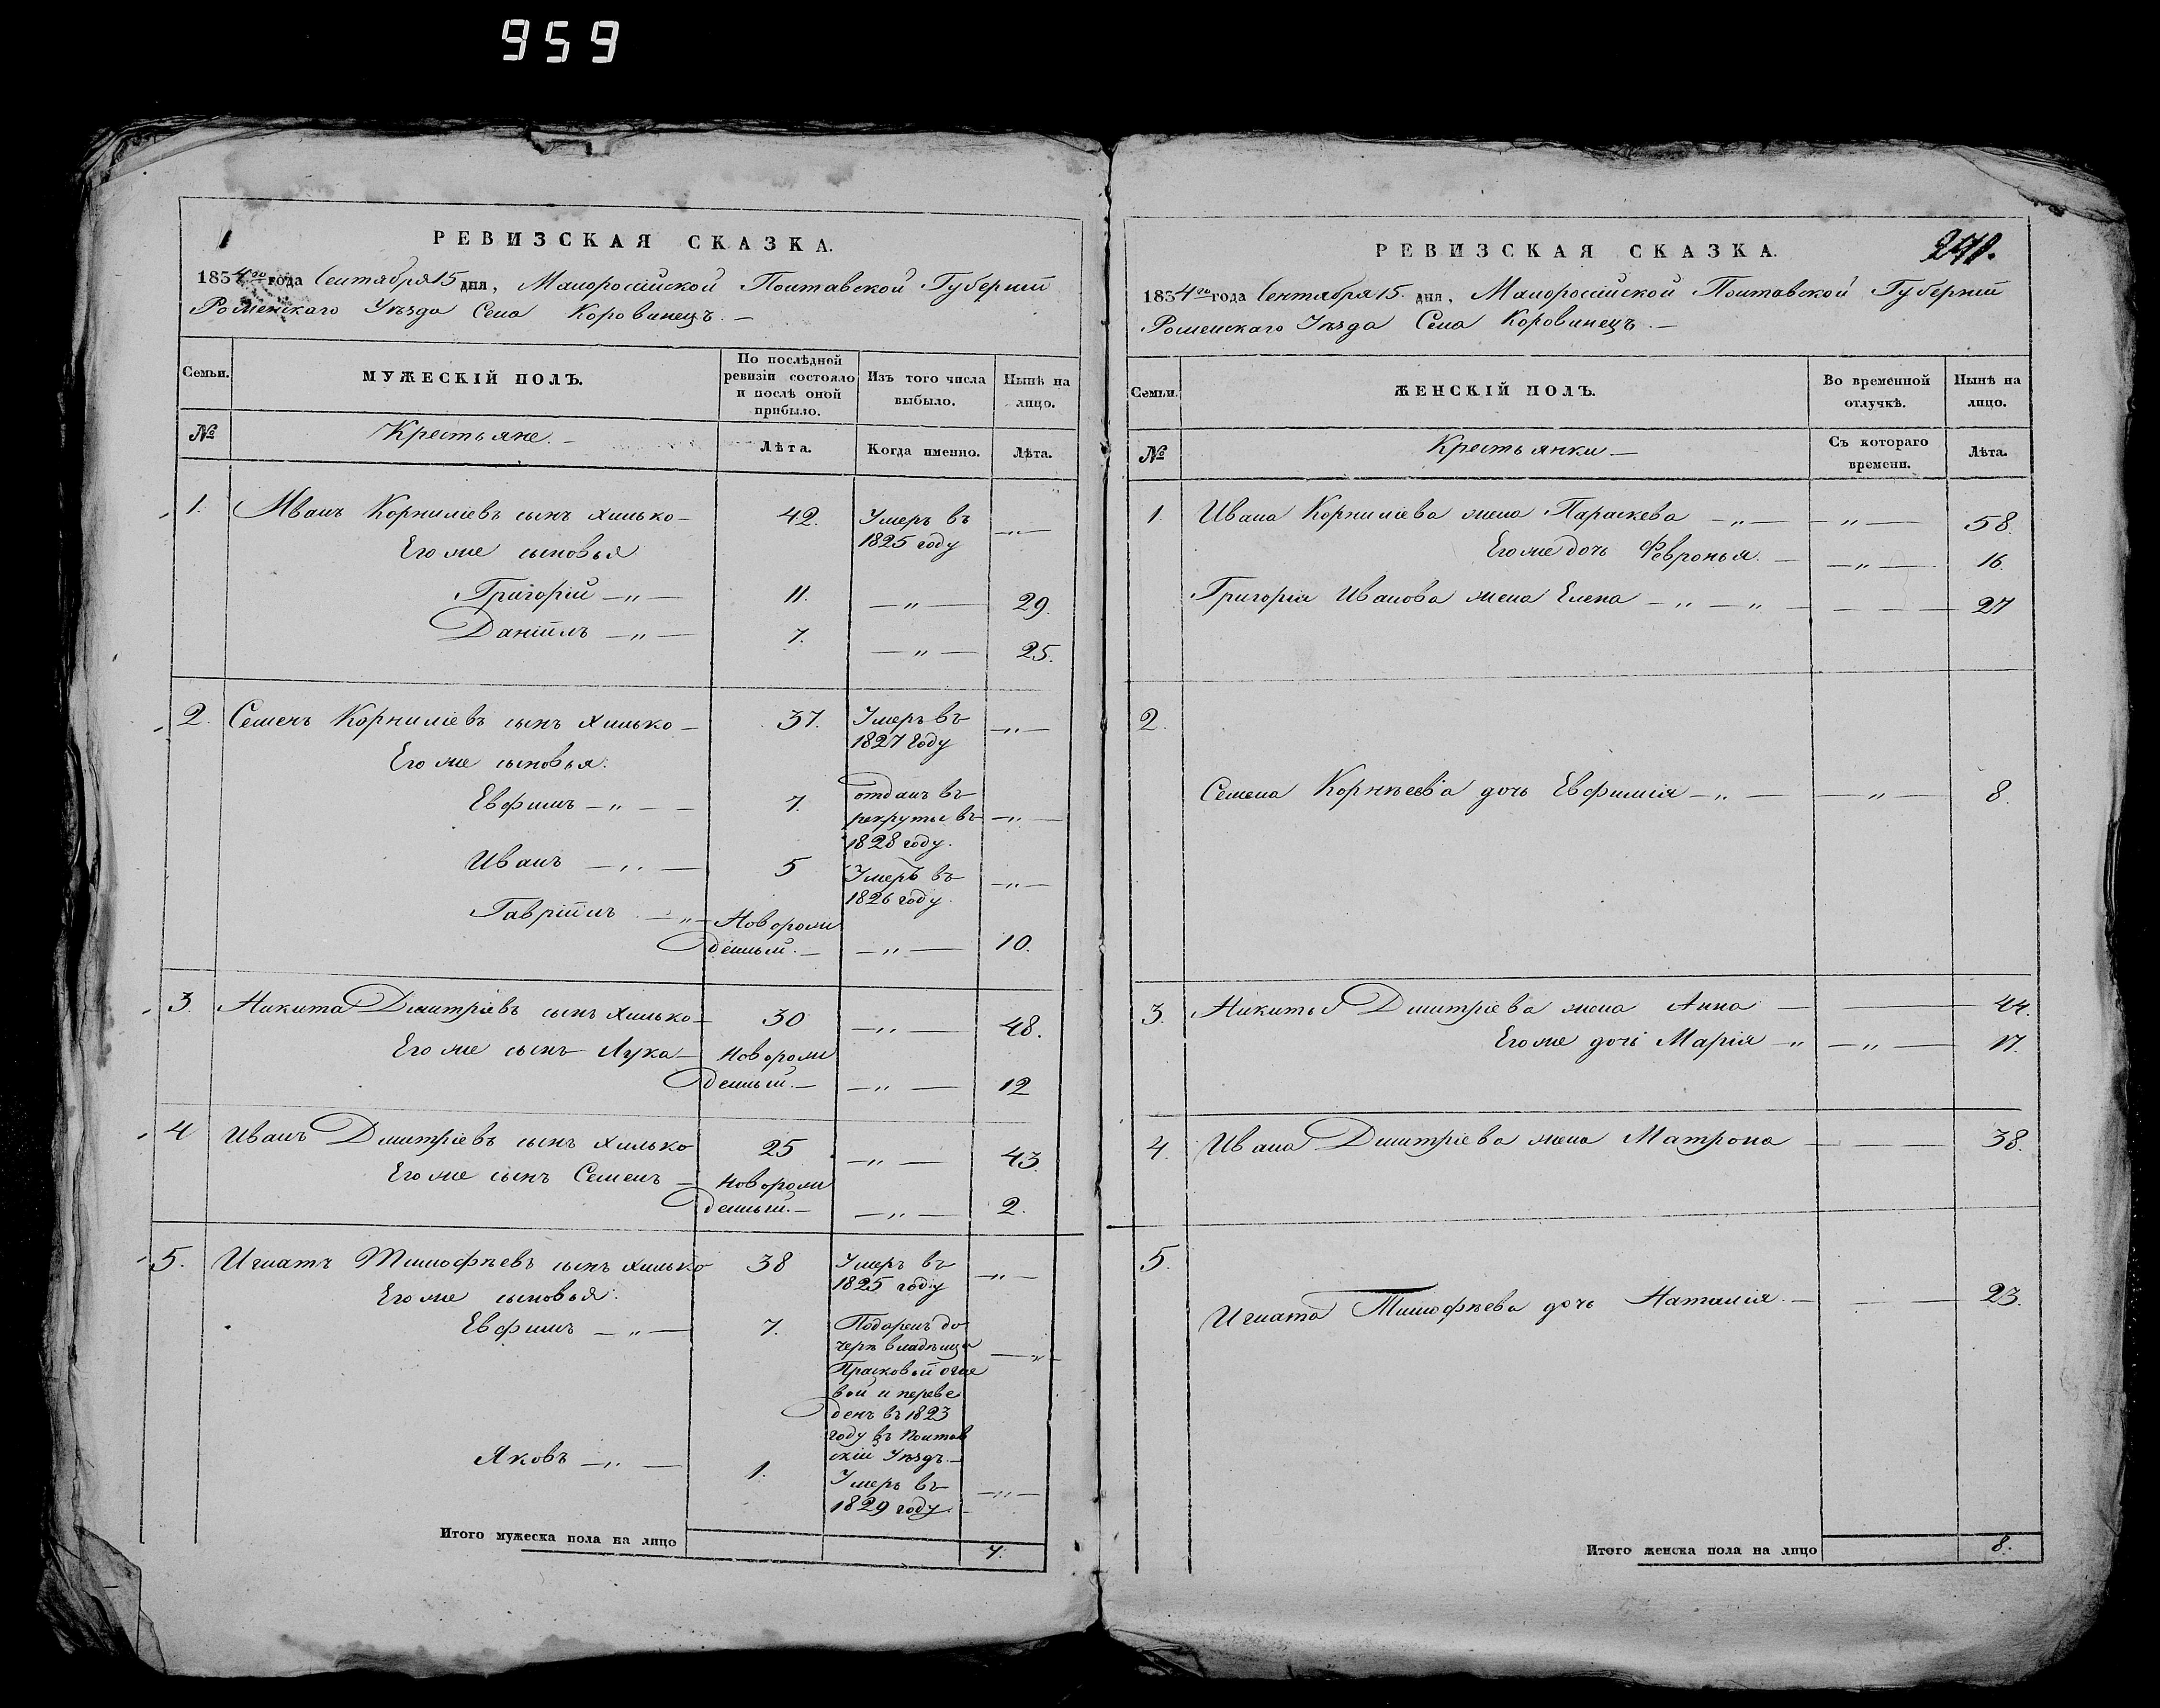 959
1
РЕВИЗСКАЯ СКАЗКА.
1834го года Сентября 15 дня, Малоросійской Полтавской Губерніи
Роменскаго Уѣзда Села Коровинецъ. —
Семьи.
МУЖЕСКІЙ ПОЛЪ.
По послѣдней ревизіи состояло и послѣ оной прибыло.
Изъ того числа выбыло.
Нынѣ на лицо.
№
Крестьяне. —
Лѣта.
Когда именно.
Лѣта.
1. Иванъ Корниліевъ сынъ Хилько — 42. Умеръ въ — „ —
1825 году
Его же сыновья
Григорій — „ — 11. — „ — 29.
Даніилъ — „ — 7. — „ — 25.
2. Семенъ Корниліевъ сынъ Хилько — 37. Умеръ въ — „ —
1827 году
Его же сыновья:
Евфимъ — „ — 7. отданъ въ
рекруты въ — „ —
1828 году.
Иванъ — „ — 5 Умеръ въ — „ —
1826 году.
Гавріилъ — „ — Новорож
денный. — — „ — 10.
3. Никита Дмитріевъ сынъ Хилько — 30 — „ — 48.
Его же сынъ Лука — Новорож
денный. — — „ — 12
4 Иванъ Дмитріевъ сынъ Хилько 25 — „ — 43.
Его же сынъ Семенъ — Новорож
денный. — — „ — 2.
5. Игнатъ Тимофѣевъ сынъ Хилько 38 Умеръ въ — „ —
1825 году
Его же сыновья:
Евфимъ — „ — 7. Подаренъ до
черѣ владѣлца — „ —
Прасковьи
вой и переве
денъ въ 1823
году въ Полтав
скій Уѣздъ. —
Яковъ — „ — 1. Умеръ въ — „ —
1829 году. —
Итого мужеска пола на лицо 7.
РЕВИЗСКАЯ СКАЗКА.
1834го года Сентября 15. дня, Малоросійской Полтавской Губерніи
Роменскаго Уѣзда Села Коровинецъ. —
Семьи.
ЖЕНСКІЙ ПОЛЪ.
Во временной отлучкѣ.
Нынѣ на лицо.
№
Крестьянки —
Съ котораго времени.
Лѣта.
1. Ивана Корниліева жена Параскева — „ — — „ — 58.
Его же дочь Февронья. — — „ — 16.
Григорія Иванова жена Елена — „ — „ — — — — 27
2.
Семена Корнѣева дочь Евфимія — „ — — „ — 8.
3. Никиты Дмитріева жена Анна — — 44.
Его же дочь Марія — „ — „ — 17.
4. Ивана Дмитріева жена Матрона — — 38.
5.
Игната Тимофѣева дочь Наталія. — — 23.
Итого женска пола на лицо 8.